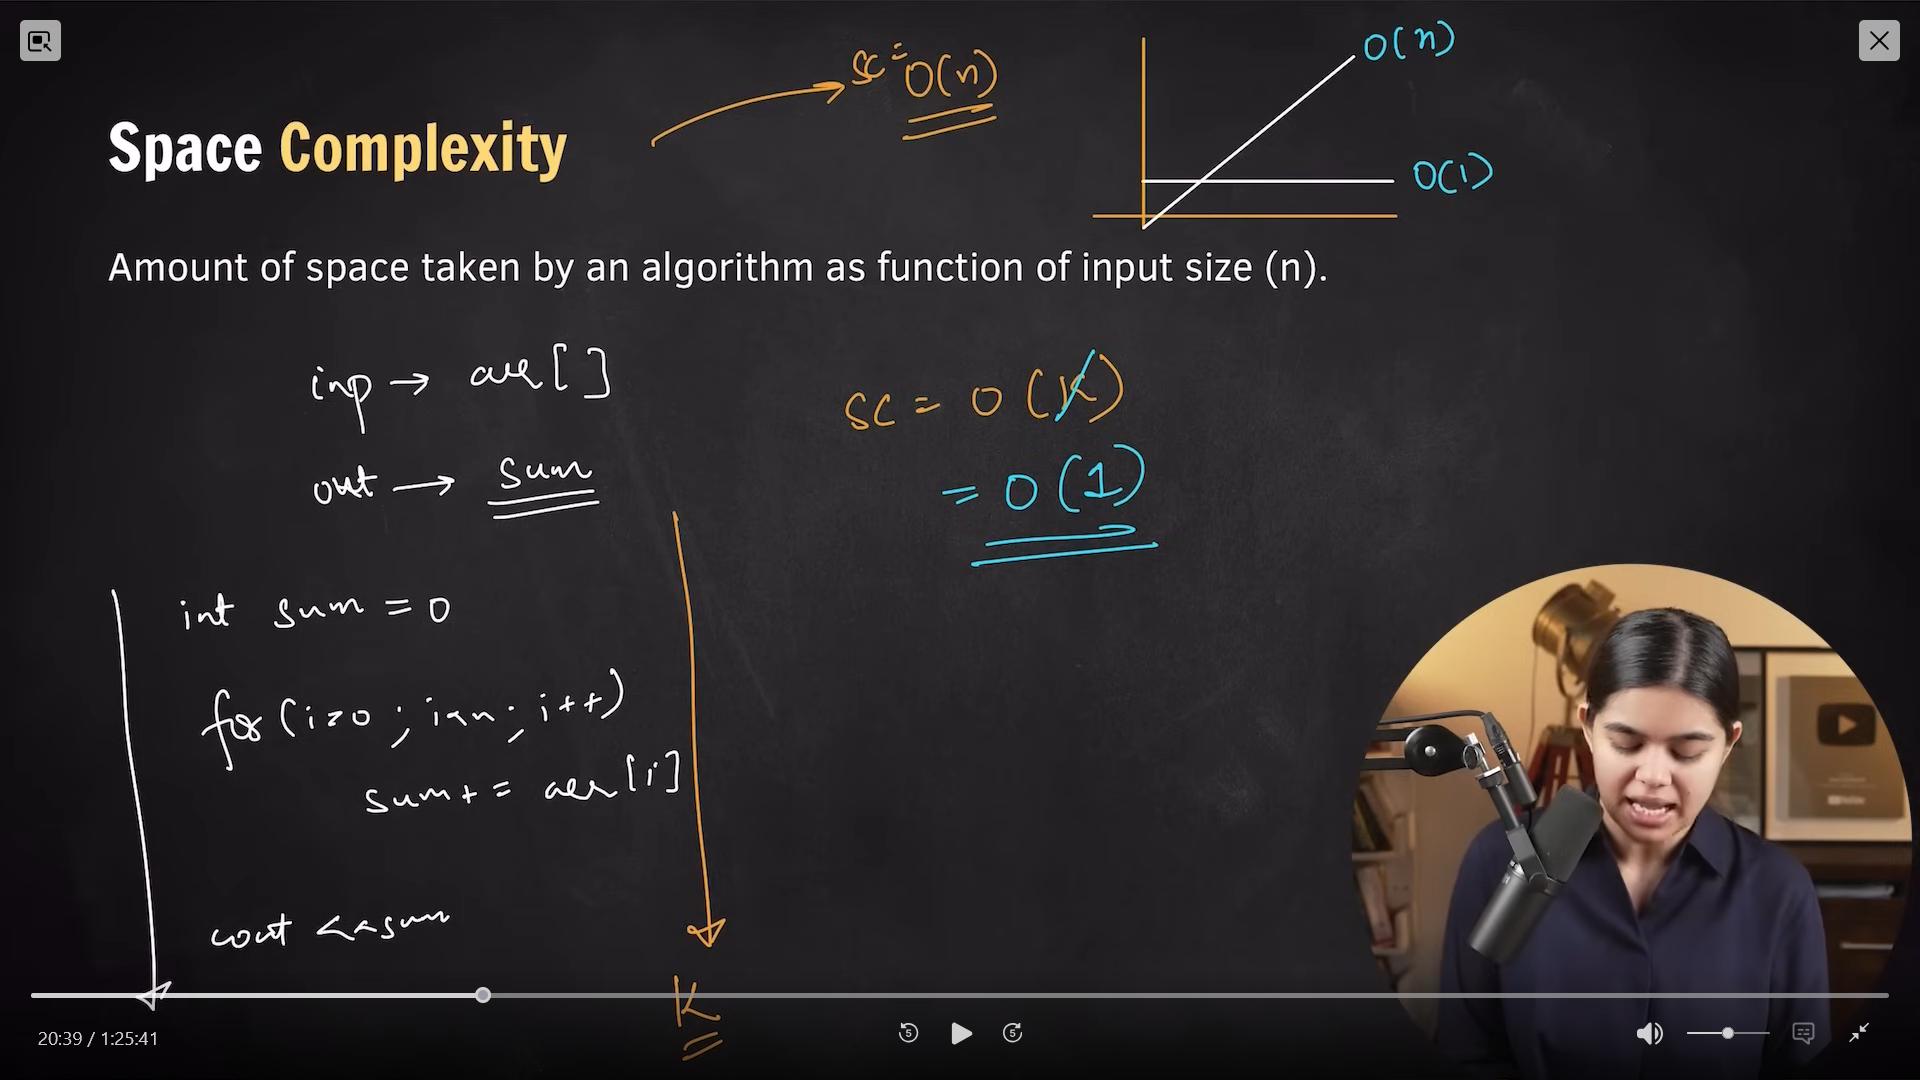 SC = O(n)
O(n)
O(1)
Space Complexity
Amount of space taken by an algorithm as function of input size (n).
inp → arr[ ]
out → sum
SC = O(K)
= O(1)
int sum = 0
for (i=0 ; i<n ; i++)
sum += arr[i]
cout <<sum
K
20:39 / 1:25:41
5
5